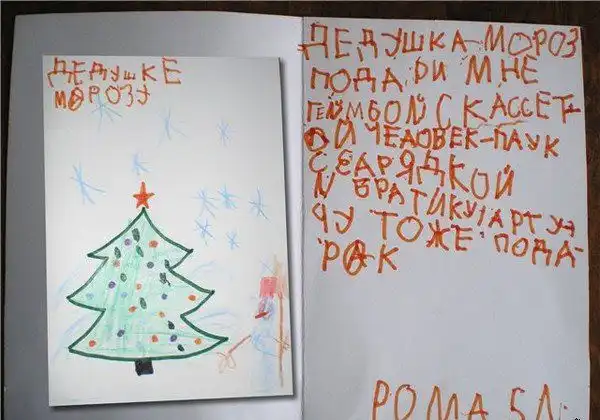 ДЕДУШКЕ
МОРОЗУ
ДЕДУШКА-МОРОЗ
ПОДАРИ МНЕ
ГЕЙМБОЙ С КАССЕТ-
ОЙ ЧЕЛОВЕК-ПАУК
С ЗАРЯДКОЙ
И БРАТИКУ АРТУ
ЧУ ТОЖЕ ПОДА-
РАК
РОМА 5Л.